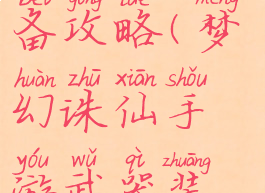 bèi gōng lüè mèng
备攻略(梦
huàn zhū xiān shǒu
幻诛仙手
yóu wǔ qì zhuāng
游武器装